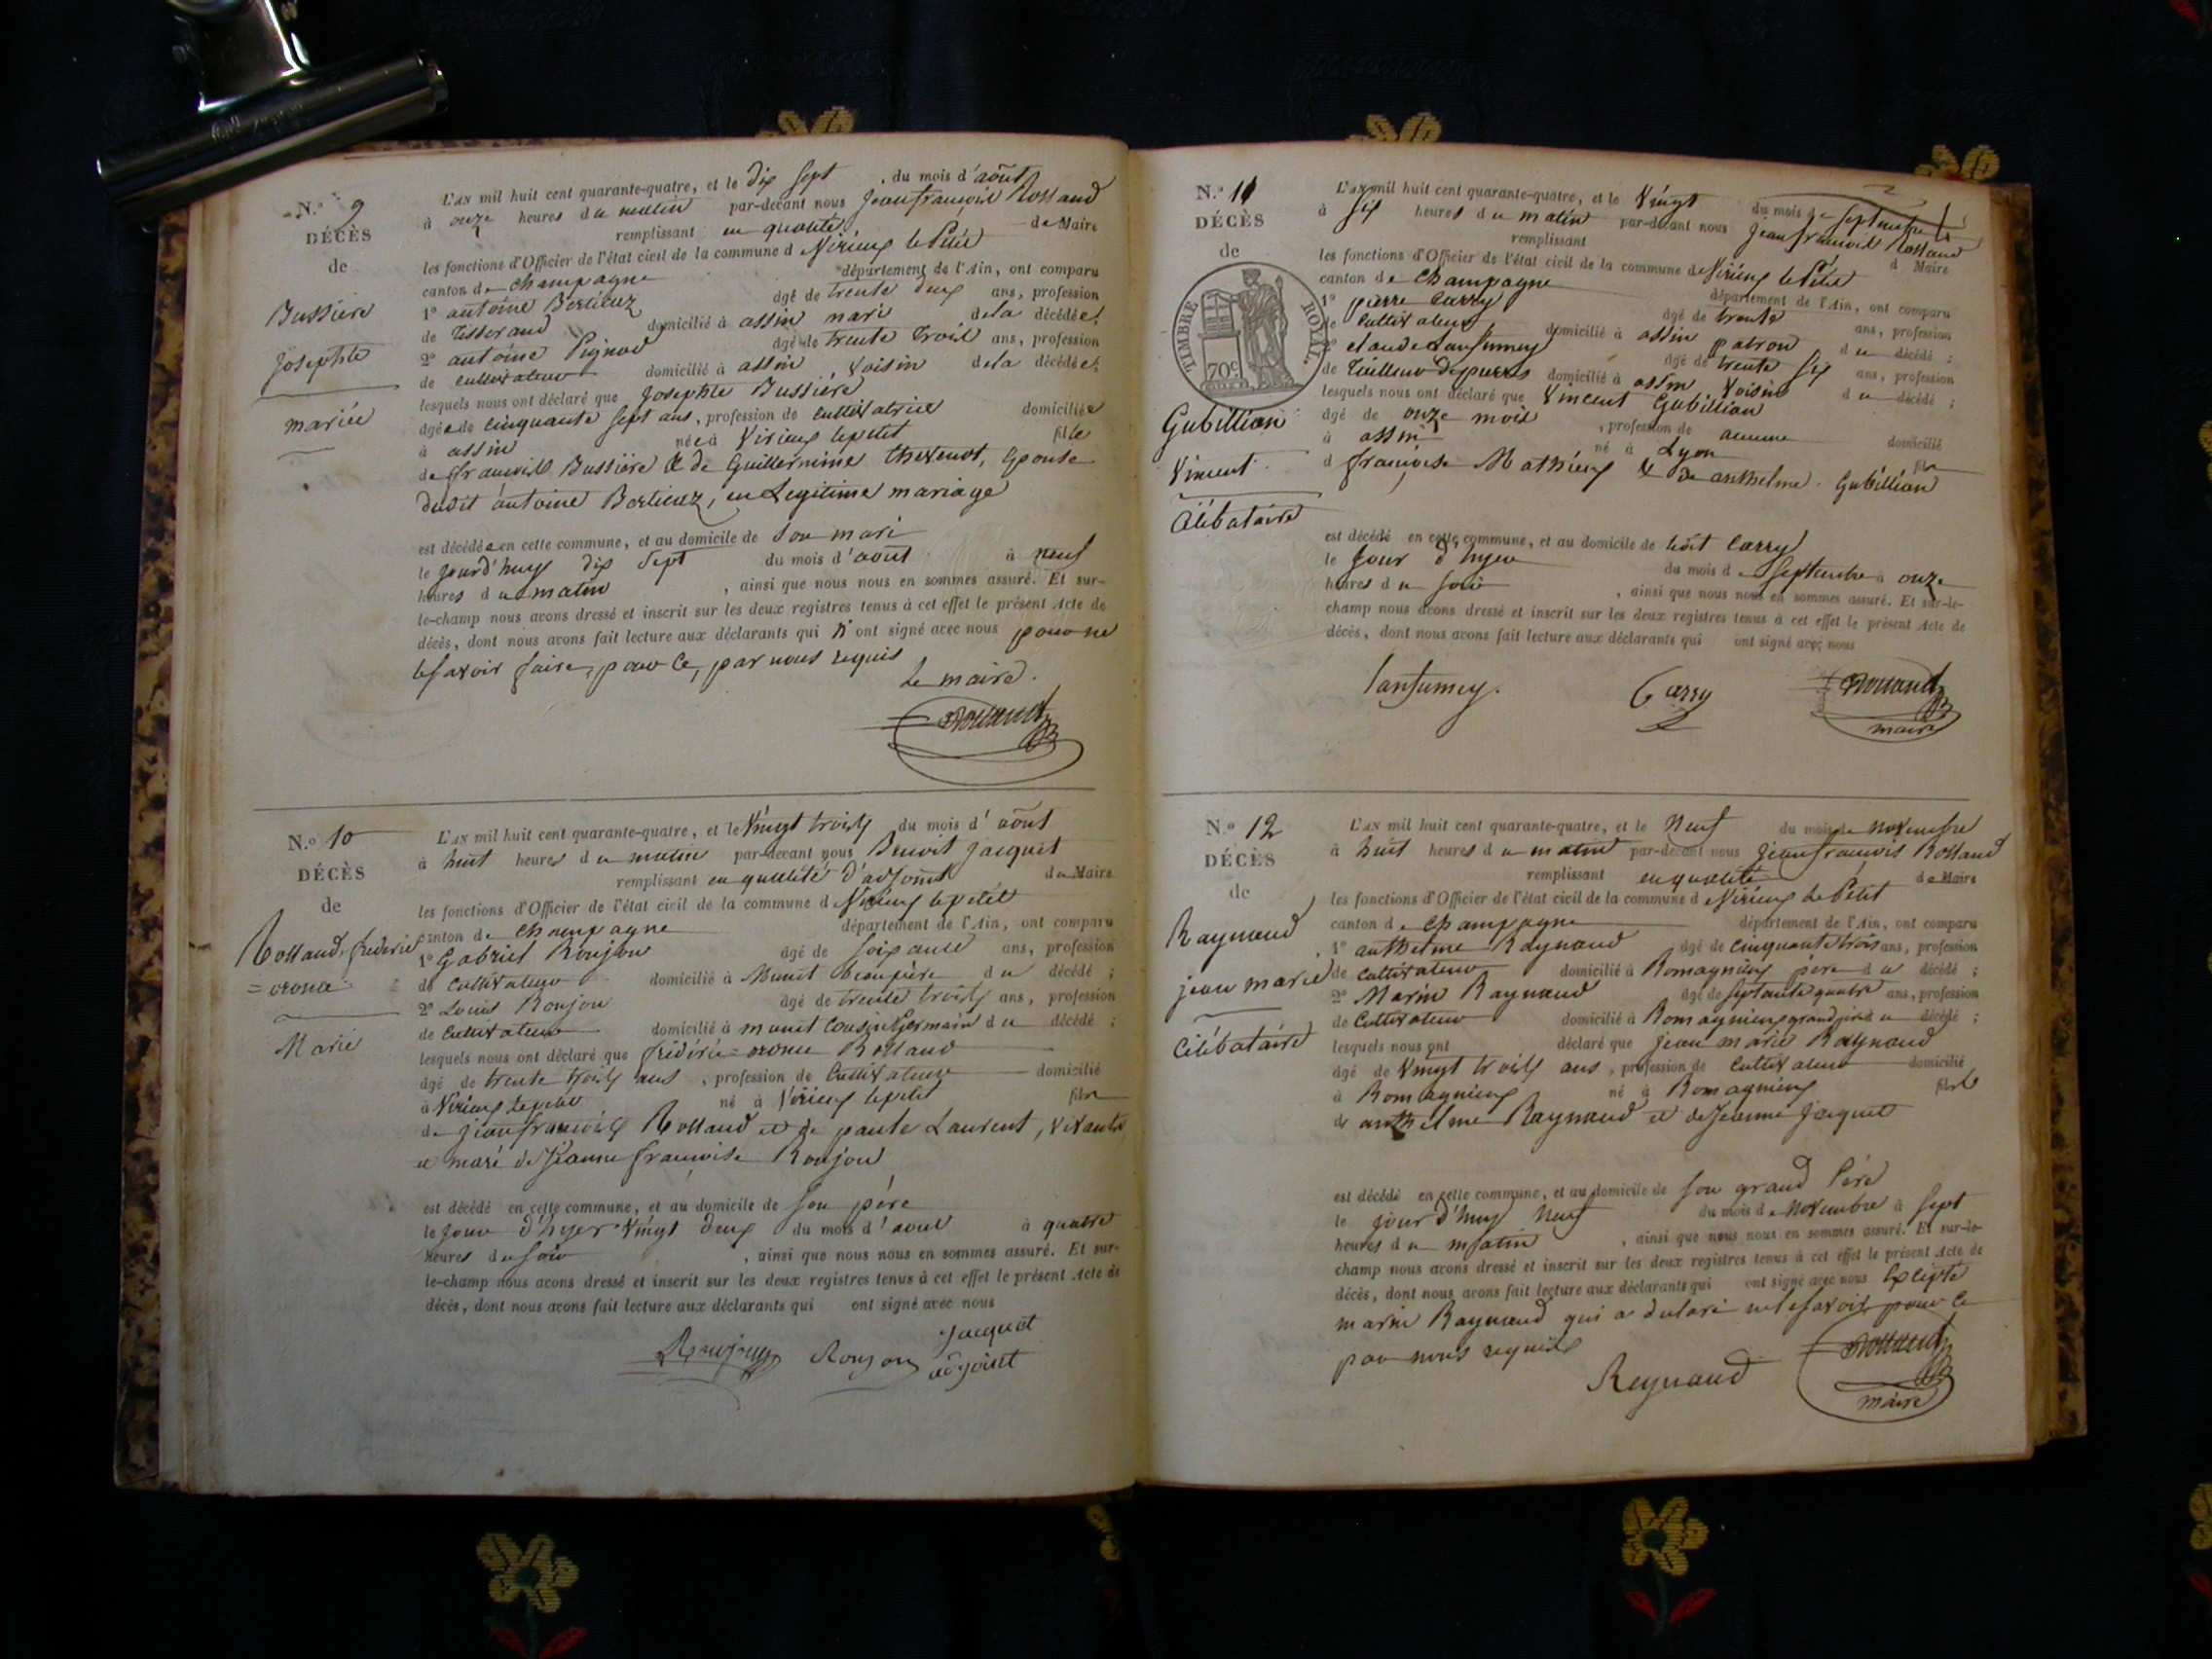 N.º 9
DÉCÈS
de
Bussiere
Josephte
mariée
L'AN mil huit cent quarante-quatre, et le dix sept du mois d'août
à onze heures du matin par-devant nous jean françois Rolland
remplissant en qualité de Maire
les fonctions d'Officier de l'état civil de la commune d Virieux le Petit
canton de champagne département de l'Ain, ont comparu
1º antoine Berlicuz âgé de trente deux ans, profession
de Tisserand domicilié à assin mari dela décédée;
2º antoine Pignod âgé de trente trois ans, profession
de cultivateur domicilié à assin, voisin dela décédée;
lesquels nous ont déclaré que Josephte Bussiere
âgée de cinquante sept ans, profession de cultivatrice domiciliée
à assin née à Virieux lepetit fille
de françois Bussière & de Guillermine thevenot, Epouse
dudit antoine Berlicuz, en Legitime mariage
est décédée en cette commune, et au domicile de son mari
le jourd'huy dix sept du mois d'août à neuf
heures du matin, ainsi que nous nous en sommes assuré. Et sur-
le-champ nous avons dressé et inscrit sur les deux registres tenus à cet effet le présent Acte de
décès, dont nous avons fait lecture aux déclarants qui n'ont signé avec nous pour ne
le savoir faire, pour ce, par nous requis
Le maire.
Rolland
N.º 10
DÉCÈS
de
Rolland, frederic
=oronce
Marié
L'AN mil huit cent quarante-quatre, et le vingt trois du mois d'août
à huit heures du matin par-devant nous Benoit jacquet
remplissant en qualité d'adjoint du Maire
les fonctions d'Officier de l'état civil de la commune d Virieux lepetit
canton de champagne département de l'Ain, ont comparu
1º Gabriel Roujou âgé de soixante ans, profession
de cultivateur domicilié à Munet beaupère du décédé;
2º Louis Roujou âgé de trente trois ans, profession
de cultivateur domicilié à munet cousin Germain du décédé;
lesquels nous ont déclaré que frédéric=oronce Rolland
âgé de trente trois ans, profession de cultivateur domicilié
à Virieux lepetit né à Virieux lepetit fils
de jean françois Rolland et de paule Laurent, vivants
et marié de Jeanne françoise Roujou
est décédé en cette commune, et au domicile de son père
le jour d'hyer vingt deux du mois d'aout à quatre
heures du soir, ainsi que nous nous en sommes assuré. Et sur-
le-champ nous avons dressé et inscrit sur les deux registres tenus à cet effet le présent Acte de
décès, dont nous avons fait lecture aux déclarants qui ont signé avec nous
Roujou Roujou Jacquet
adjoint
N.º 11
DÉCÈS
de
TIMBRE ROYAL.
70c
Gubillian
Vincent
Célibataire
L'AN mil huit cent quarante-quatre, et le vingt du mois de septembre
à six heures du matin par-devant nous jean françois Rolland
remplissant d Maire
les fonctions d'Officier de l'état civil de la commune de Virieux le Petit
canton de champagne département de l'Ain, ont comparu
1º pierre Carry âgé de trente ans, profession
de cultivateur domicilié à assin patron du décédé;
2º claude Lansumey âgé de trente six ans, profession
de Tailleur de pierres domicilié à assin voisin du décédé;
lesquels nous ont déclaré que Vincent Gubillian
âgé de onze mois, profession de aucune domicilié
à assin né à Lyon fils
d françoise Mathieux & de anthelme Gubillian
est décédé en cette commune, et au domicile de dudit Carry
le jour d'hyer du mois de septembre à onze
heures du soir, ainsi que nous nous en sommes assuré. Et sur-le-
champ nous avons dressé et inscrit sur les deux registres tenus à cet effet le présent Acte de
décès, dont nous avons fait lecture aux déclarants qui ont signé avec nous
Lansumey. Carry Rolland
maire
N.º 12
DÉCÈS
de
Raynaud
jean marie
Célibataire
L'AN mil huit cent quarante-quatre, et le neuf du mois de novembre
à huit heures du matin par-devant nous jean françois Rolland
remplissant en qualité de Maire
les fonctions d'Officier de l'état civil de la commune d Virieux le Petit
canton de champagne département de l'Ain, ont comparu
1º anthelme Raynaud âgé de cinquante trois ans, profession
de cultivateur domicilié à Romagnieux père du décédé;
2º Marin Raynaud âgé de septante quatre ans, profession
de cultivateur domicilié à Romagnieux grand père du décédé;
lesquels nous ont déclaré que jean marie Raynaud
âgé de vingt trois ans, profession de cultivateur domicilié
à Romagnieux né à Romagnieux fils
de anthelme Raynaud et de Jeanne Jacquet
est décédé en cette commune, et au domicile de son grand Père
le jour d'huy neuf du mois de novembre à sept
heures du matin, ainsi que nous nous en sommes assuré. Et sur-le-
champ nous avons dressé et inscrit sur les deux registres tenus à cet effet le présent Acte de
décès, dont nous avons fait lecture aux déclarants qui ont signé avec nous Excepté
marin Raynaud qui a déclaré ne le savoir, pour ce
par nous requis
Reynaud Rolland
maire